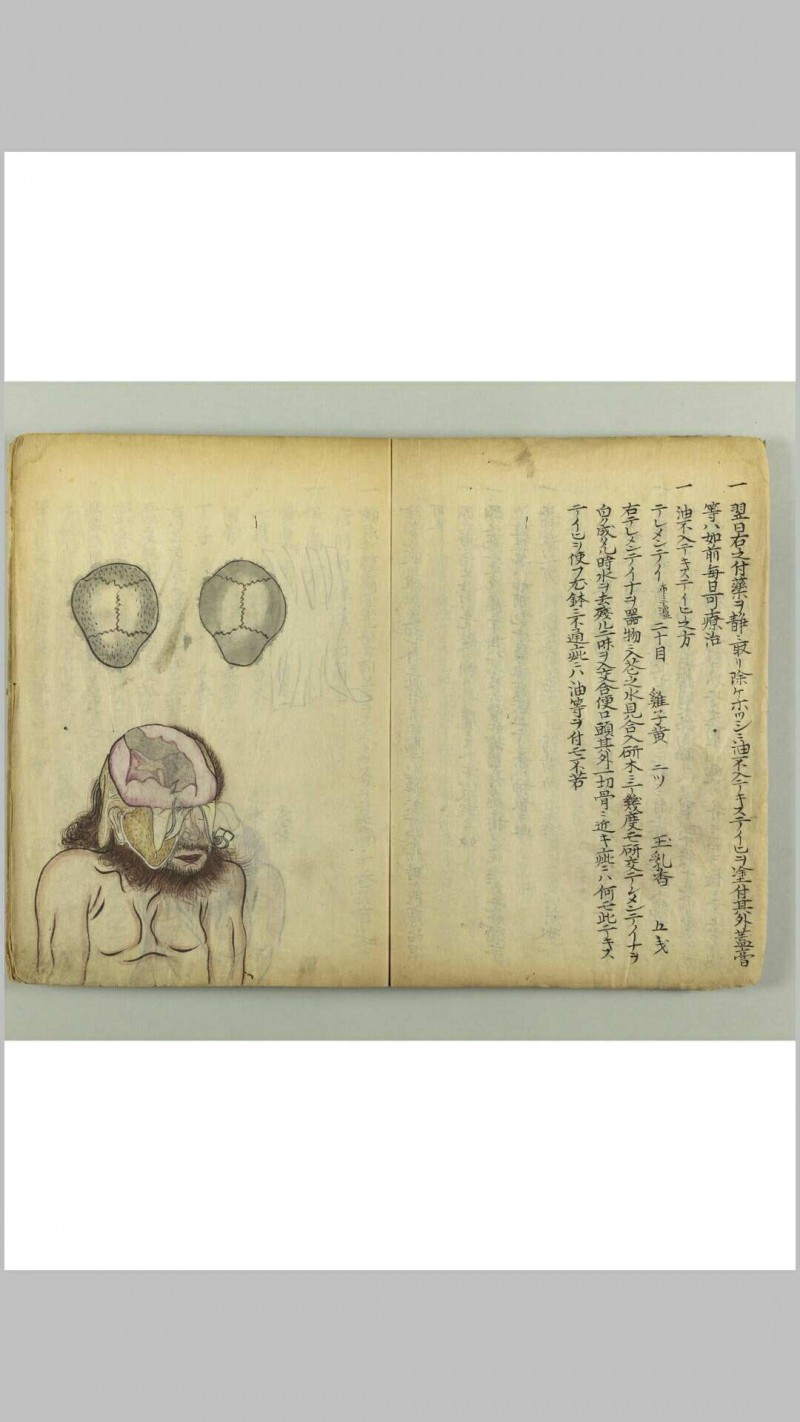 一 翌日右之付藥ヲ靜ニ取リ除ケホツシニ油不入テキステイヒヲ塗付其外蓋膏
等ハ如前毎日可療治
一 油不入テキステイヒ之方
テレメンテイナ 二十目 雞子黄 二ツ 乳香 五戔
右テレメンテイナヲ器物ニ入 水見合入研木ニテ幾度モ研交テレメンテイナヲ
白ク成タル時水ヲ去殘ル二味ヲ入交合便ロ頭其外一切骨ニ近キ疵ニハ何モ此テキス
テイヒヲ便フ尤鉢ニ不通疵ニハ油等ヲ付モ不若